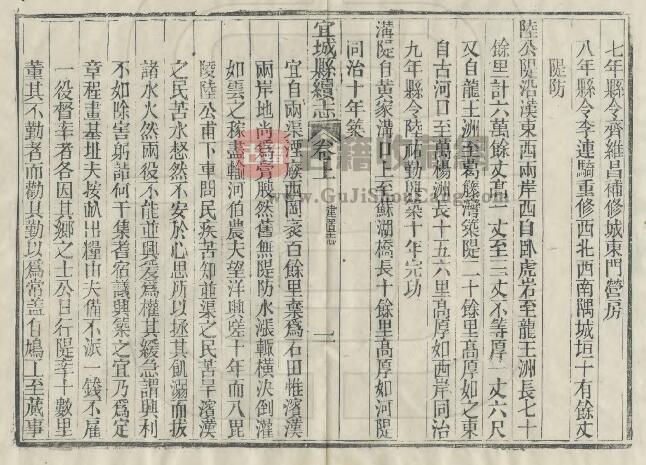 七年縣令齊維昌補修城東門營房
八年縣令李連騎重修西北西南隅城垣十有餘丈
隄防
陸公隄沿漢東西兩岸西自臥虎岩至龍王洲長七十
餘里計六萬餘丈高一丈至三丈不等厚一丈六尺
又自龍王洲至葛藤灣築隄二十餘里高厚如之東
自古河口至萬楊洲長十五六里高厚如西岸同治
九年縣令陸祐勤興築十年完功
溝隄自黃家溝口上至蘇湖橋長十餘里高厚如河隄
同治十年築
宜城縣續志 卷上 建置志 二
宜自兩渠湮廢西岡袤百餘里棄為石田惟濱漢
兩岸地尚為膏腴然舊無隄防水漲輒橫決倒灌
如雲之稼盡輸河伯農夫望洋興嗟十年而八毘
陵陸公甫下車問民疾苦知並渠之民苦旱濱漢
之民苦水愁然不安於心思所以拯其飢溺而拔
諸水火然兩役不能並興爰為權其緩急謂興利
不如除害躬詣河干集耆宿議興築之宜乃為定
章程畫基址夫按畝出糧由夫備不派一錢不雇
一役督率者各因其鄉之士公日行隄率十數里
董其不勤者而勸其勤以為常蓋自鳩工至蕆事
古籍收藏网
www.GuJiShouCang.com